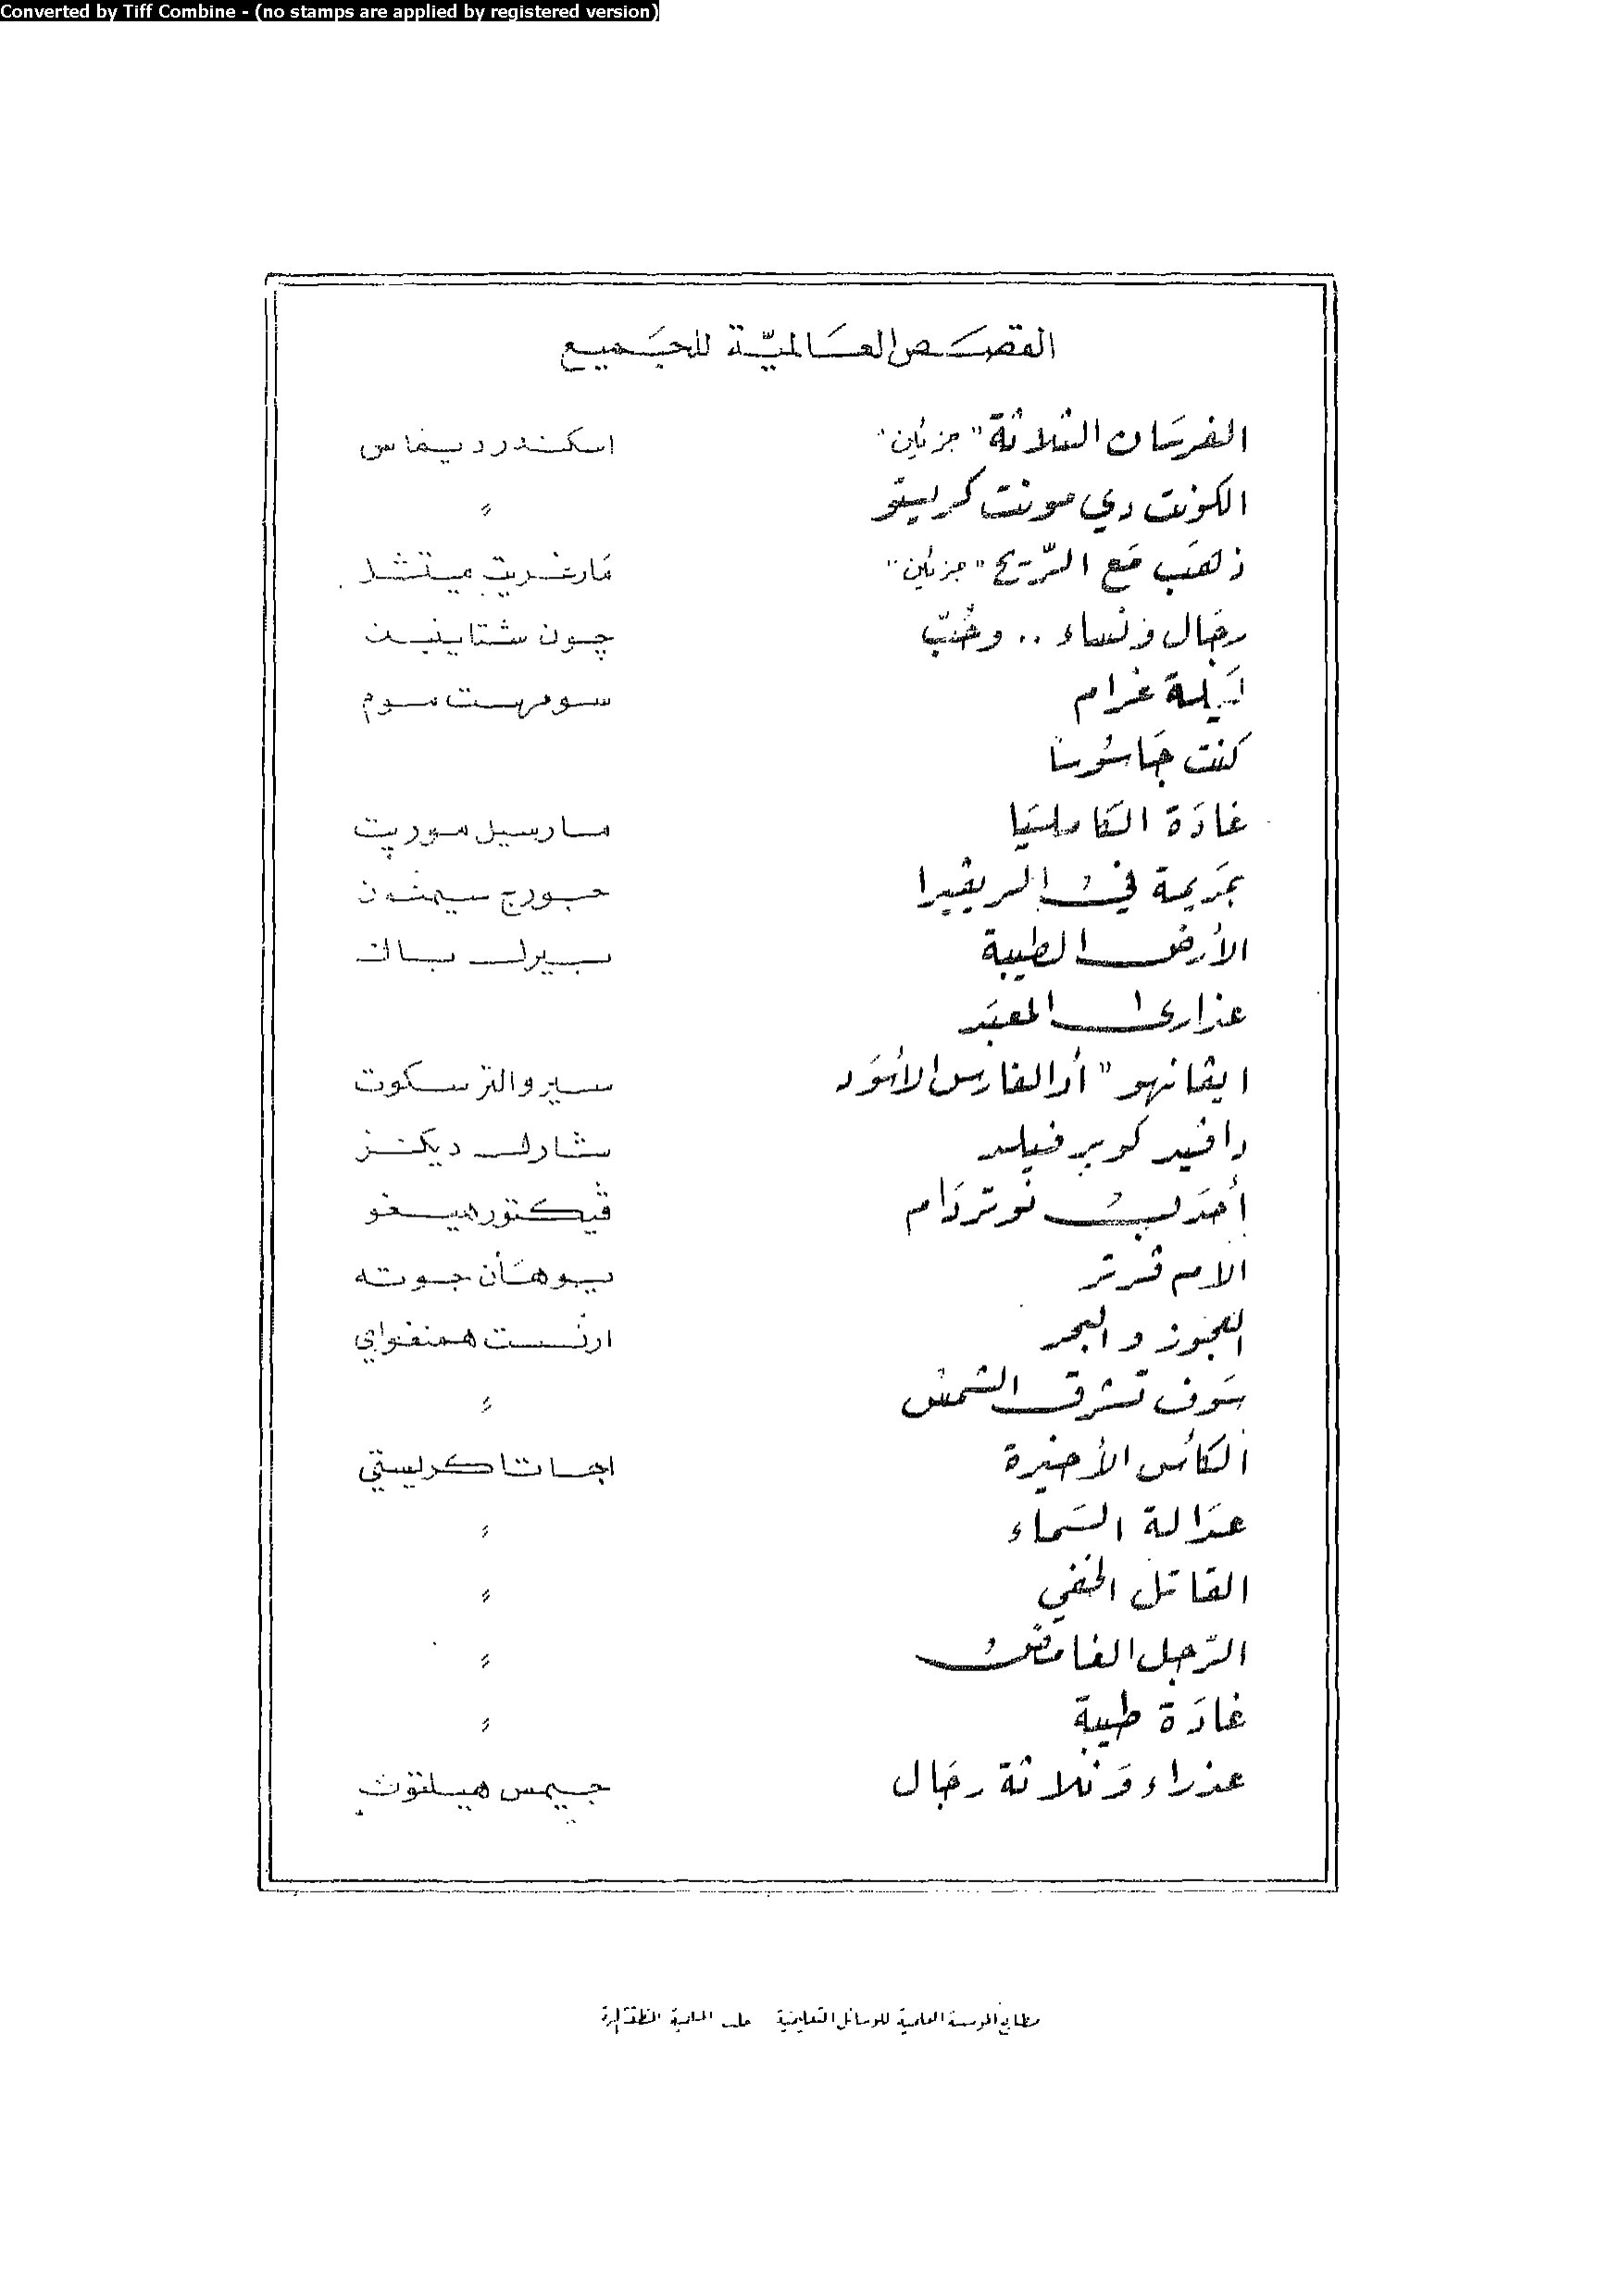 Converted by Tiff Combine - (no stamps are applied by registered version)
القصَص العَالميّة للجَميع
الفرسَان الثلاثة "جزئين" اسكندر ديماس
الكونت دي مونت كريستو "
ذهَب مَع الرّيح "جزئين" مَارغريت ميتشل
رجَال ونساء .. وحُبّ چون شتاينبك
لَيلة غرام سومرست موم
كنت جَاسُوسا
غادَة الكَاميليَا مارسيل موريت
جَريمة في الريڤيرا جورج سيمنون
الأرض الطيبة بيرل باك
عذارى المعبَد
ايڤانهو "أو الفارس الأسوَد سير والتر سكوت
دافيد كوبر فيلد شارلس ديكنز
أحدَب نوتردَام ڤيكتور هيغو
الام ڤرتر يوهَان جوته
العجوز والبحر ارنست همنغواي
سَوف تشرق الشمس "
الكأس الأخيرة اجاتا كريستي
عدَالة السَماء "
القاتل الخفي "
الرّجل الغامض "
غادَة طيبة "
عذراء وَثلاثة رجَال جيمس هيلتون
مطابع المؤسسة العلمية للوسائل التعليمية حلب